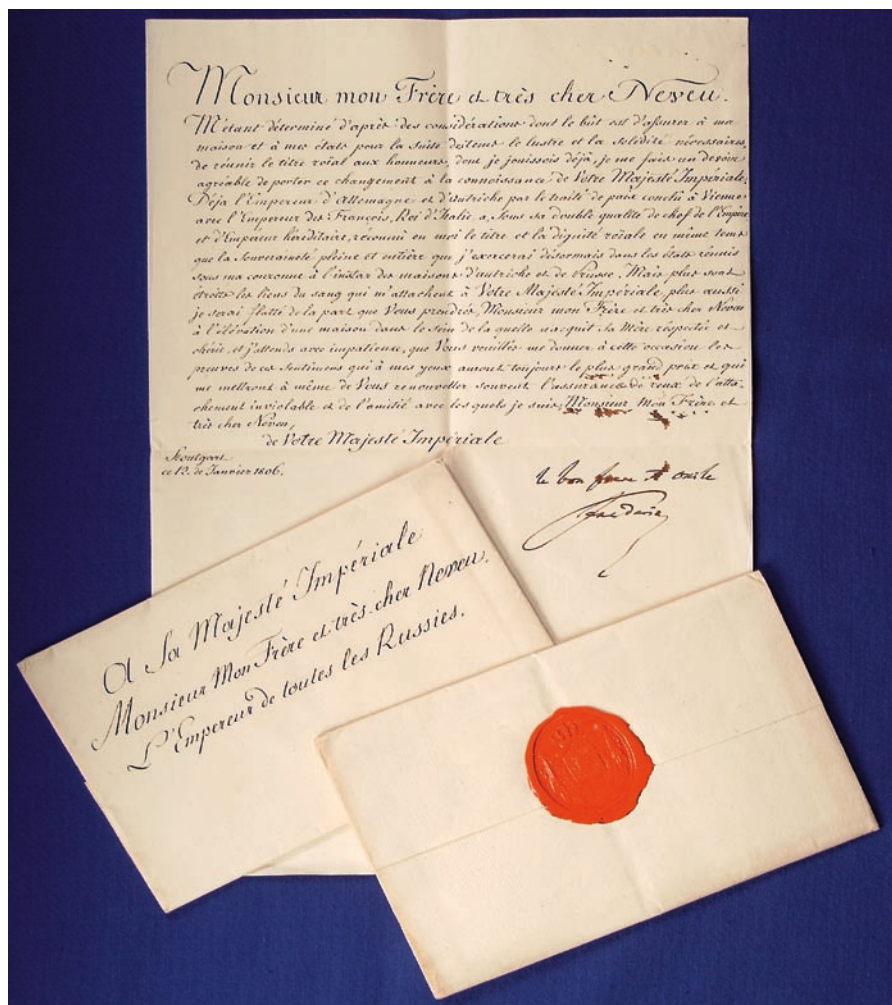 Monsieur mon Frère et très cher Neveu.
M'étant déterminé d'après des considérations dont le bût est d'assurer à ma
maison et à mes états pour la suite des tems le lustre et la solidité nécessaires,
de réunir le titre roïal aux honneurs, dont je jouissois déjà, je me fais un devoir
agréable de porter ce changement à la connoissance de Votre Majesté Impériale.
Déja l'Empereur d'Allemagne et d'Autriche par le traité de paix conclû à Vienne
avec l'Empereur des François, Roi d'Italie a, sous sa double qualité de chef de l'Empire
et d'Empereur héréditaire, réconnu en moi le titre et la dignité roïale en même tems
que la Souveraineté pleine et entière que j'exercerai désormais dans les états réunis
sous ma couronne à l'instar des maisons d'Autriche et de Prusse. Mais plus sont
étroits les liens du sang qui m'attachent à Votre Majesté Impériale, plus aussi
je serai flatté de la part que Vous prendrés, Monsieur mon Frère et très cher Neveu
à l'élévation d'une maison dans le sein de la quelle nacquit sa Mère respectée et
chérie, et j'attends avec impatience, que Vous veuillés me donner à cette occasion les
preuves de ces sentimens qui à mes yeux auront toujours le plus grand prix et qui
me mettront à même de Vous renouveller souvent l'assurance de ceux de l'atta-
chement inviolable et de l'amitié avec les quels je suis, Monsieur Mon Frère et
très cher Neveu,
de Votre Majesté Impériale
Stoutgart
ce 12. de Janvier 1806.
le bon frere et oncle
Frederic
A Sa Majesté Impériale
Monsieur Mon Frère et très cher Neveu.
L'Empereur de toutes les Russies.